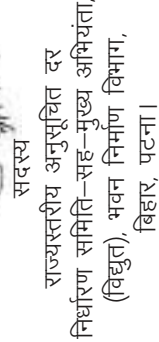 सदस्य
राज्यस्तरीय अनुसूचित दर
निर्धारण समिति–सह–मुख्य अभियंता,
(विद्युत), भवन निर्माण विभाग,
बिहार, पटना।